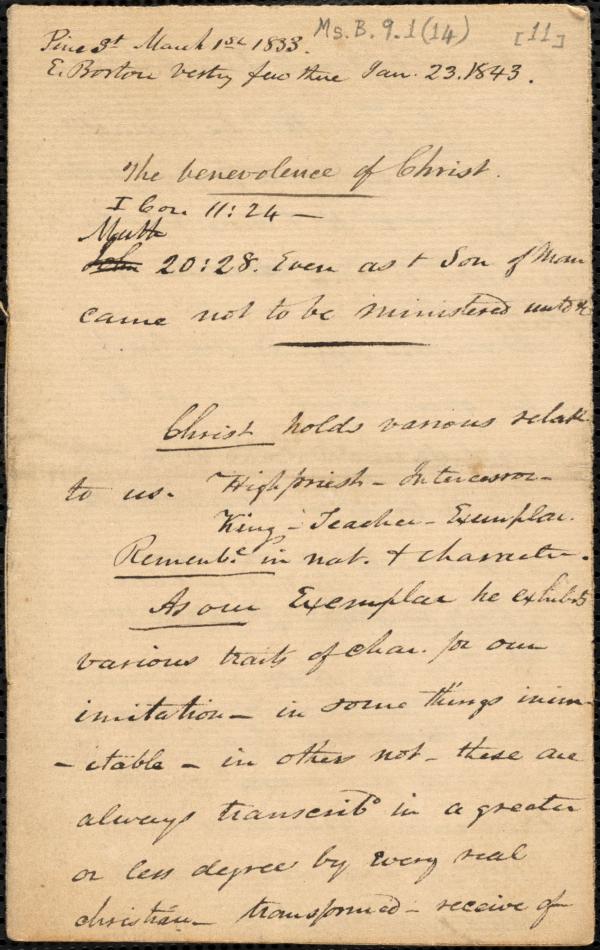 Pine St March 1st 1833. Ms. B. 9.1 (14) [11]
E. Boston vestry few there Jan. 23. 1843.
The benevolence of Christ.
I Cor. 11:24 —
Matth
John 20:28. Even as + Son of Man
came not to be ministered unto &c
Christ holds various relat.
to us. High priest - Intercessor -
King - Teacher - Exemplar.
Rememb.e in nat. + character.
As our Exemplar he exhibits
various traits of char. for our
imitation - in some things inim-
-itable - in others not - these are
always transcribd in a greater
or less degree by every real
christian - transformed - receive of